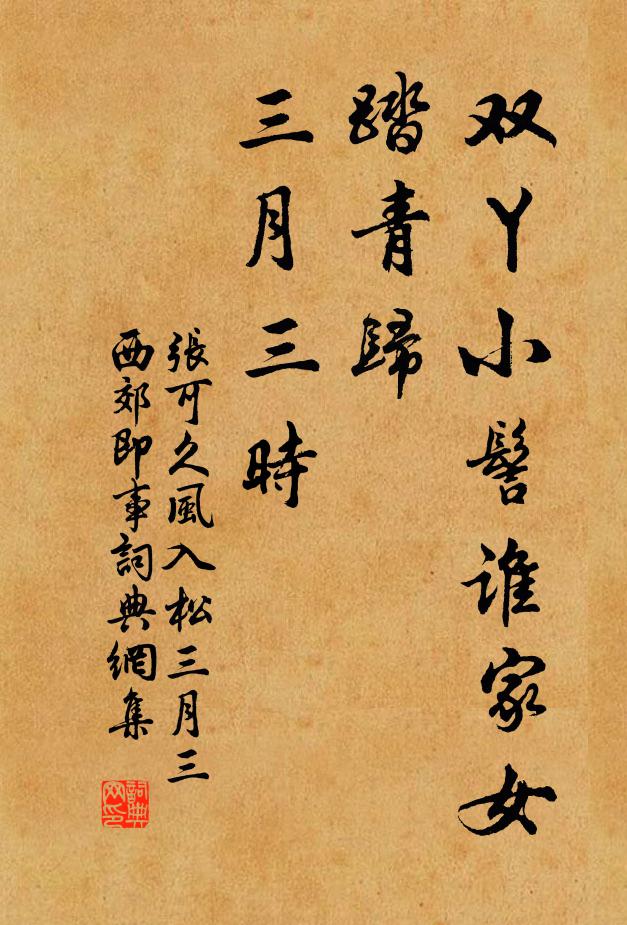 双丫小髻谁家女
踏青歸
三月三時
張可久風入松三月三
西郊即事詞典網集
詞典
网印